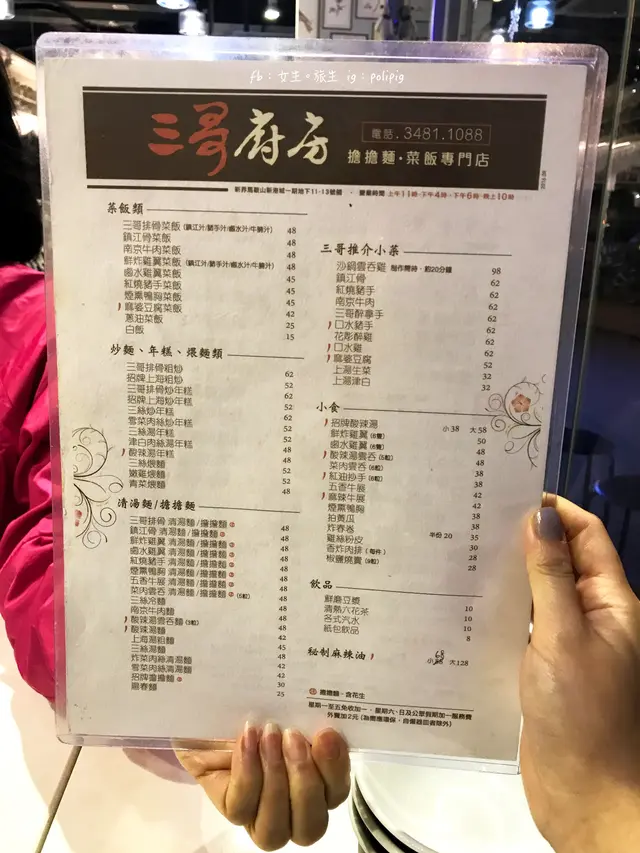 fb：女生。旅生 ig：polipig
三哥廚房
電話.3481.1088
擔擔麵·菜飯專門店
新界馬鞍山新港城一期地下11-13號舖 · 營業時間 上午11時-下午4時·下午6時-晚上10時
菜飯類
三哥排骨菜飯 (鎮江汁/豬手汁/鹵水汁/牛腩汁) 48
鎮江骨菜飯 48
南京牛肉菜飯 48
鮮炸雞翼菜飯 (鎮江汁/豬手汁/鹵水汁/牛腩汁) 48
鹵水雞翼菜飯 48
紅燒豬手菜飯 45
煙熏鴨胸菜飯 45
麻婆豆腐菜飯 45
蔥油菜飯 25
白飯 15
炒麵、年糕、煨麵類
三哥排骨粗炒 62
招牌上海粗炒 52
三哥排骨炒年糕 62
招牌上海炒年糕 52
三絲炒年糕 62
雪菜肉絲炒年糕 52
三絲湯年糕 52
津白肉絲湯年糕 52
酸辣湯年糕 52
三絲煨麵 52
嫩雞煨麵 52
青菜煨麵 48
清湯麵/擔擔麵
三哥排骨 清湯麵/擔擔麵 48
鎮江骨 清湯麵/擔擔麵 48
鮮炸雞翼 清湯麵/擔擔麵 48
鹵水雞翼 清湯麵/擔擔麵 48
紅燒豬手 清湯麵/擔擔麵 48
煙熏鴨胸 清湯麵/擔擔麵 48
五香牛展 清湯麵/擔擔麵 48
菜肉雲吞 清湯麵/擔擔麵 (5粒) 48
三絲冷麵 48
南京牛肉麵 48
酸辣湯雲吞麵 (3粒) 48
酸辣湯麵 48
上海湯粗麵 42
三絲湯麵 48
炸菜肉絲清湯麵 42
雪菜肉絲清湯麵 42
招牌擔擔麵 30
陽春麵 25
三哥推介小菜
沙鍋雲吞雞 每作需時，約20分鐘 98
鎮江骨 62
紅燒豬手 62
南京牛肉 62
三哥醉拿手 62
口水豬手 62
花彫醉雞 62
口水雞 62
麻婆豆腐 52
上湯生菜 32
上湯津白 32
小食
招牌酸辣湯 小38 大58
鮮炸雞翼 (6隻) 50
鹵水雞翼 (6隻) 48
酸辣湯雲吞 (5粒) 48
菜肉雲吞 (6粒) 38
紅油抄手 (6粒) 38
五香牛展 48
麻辣牛展 42
煙熏鴨胸 42
拍黃瓜 38
炸春卷 38
雞絲粉皮 半份 20 35
香炸肉排 (每件) 30
椒鹽燒賣 (9粒) 28
28
飲品
鮮磨豆漿 10
清熱六花茶 10
各式汽水 10
紙包飲品 8
秘制麻辣油 小68 大128
擔擔麵，含花生
星期一至五免收加一，星期六、日及公眾假期加一服務費
外賣加2元 (為響應環保，自備器皿者除外)